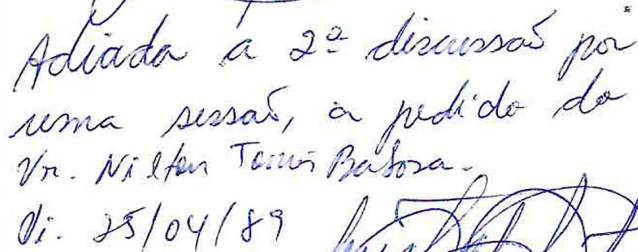 Adiada a 2ª discussão por
uma sessão, a pedido do
Vr. Nilton Tomé Barbosa.
25/04/89